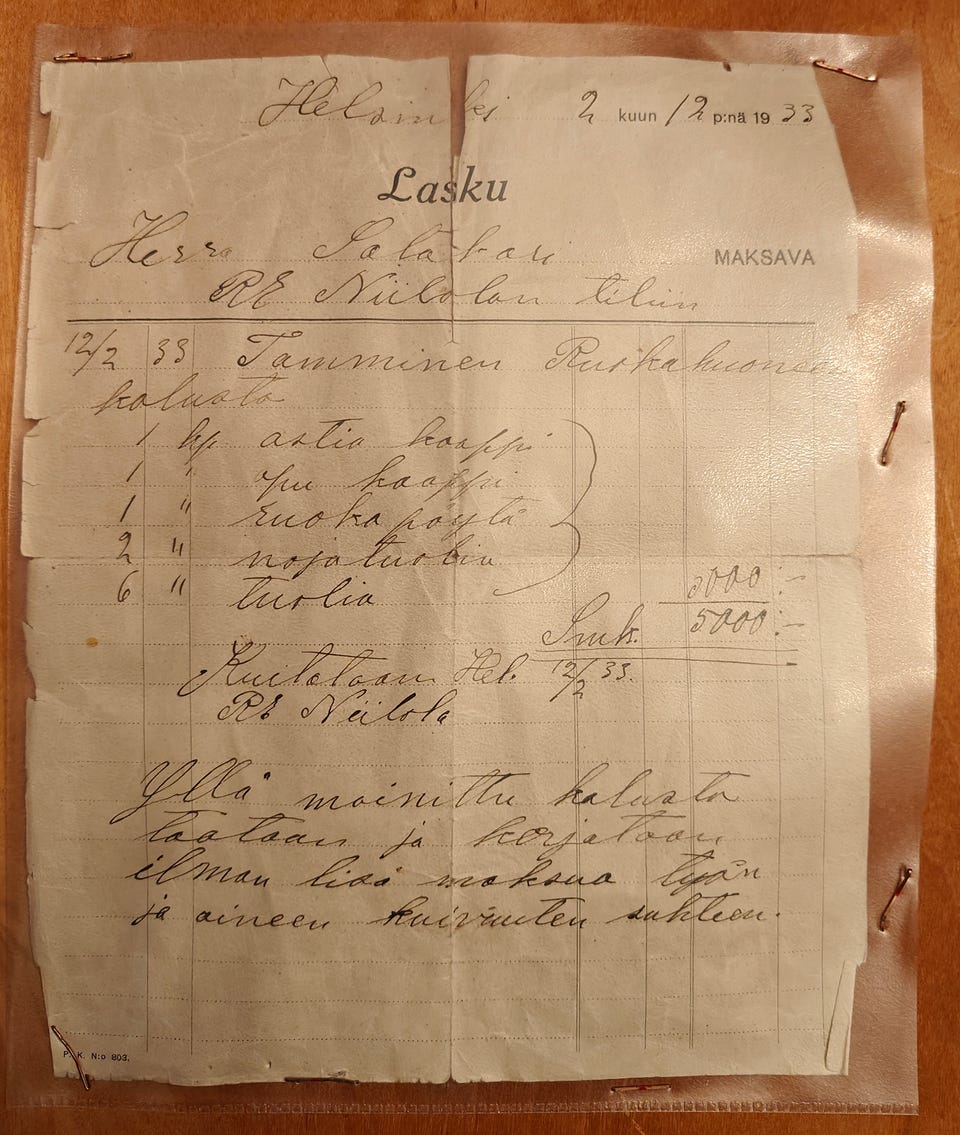 Helsinki 2 kuun 12 p:nä 1933
Lasku
Herra Satakari MAKSAVA
RE Niilolan tiliin
12/2 33 Tamminen Ruokahuoneen
kalusto
1 kp astia kaappi
1 " apu kaappi
1 " ruoka pöytä
2 " nojatuolia
6 " tuolia 5000:-
Smk. 5000:-
Kuitataan Hel. 12/2 33.
RE Niilola
Yllä mainittu kalusto
taataan ja korjataan
ilman lisä maksua työn
ja aineen kuivuuten suhteen.
P. K. N:o 803.